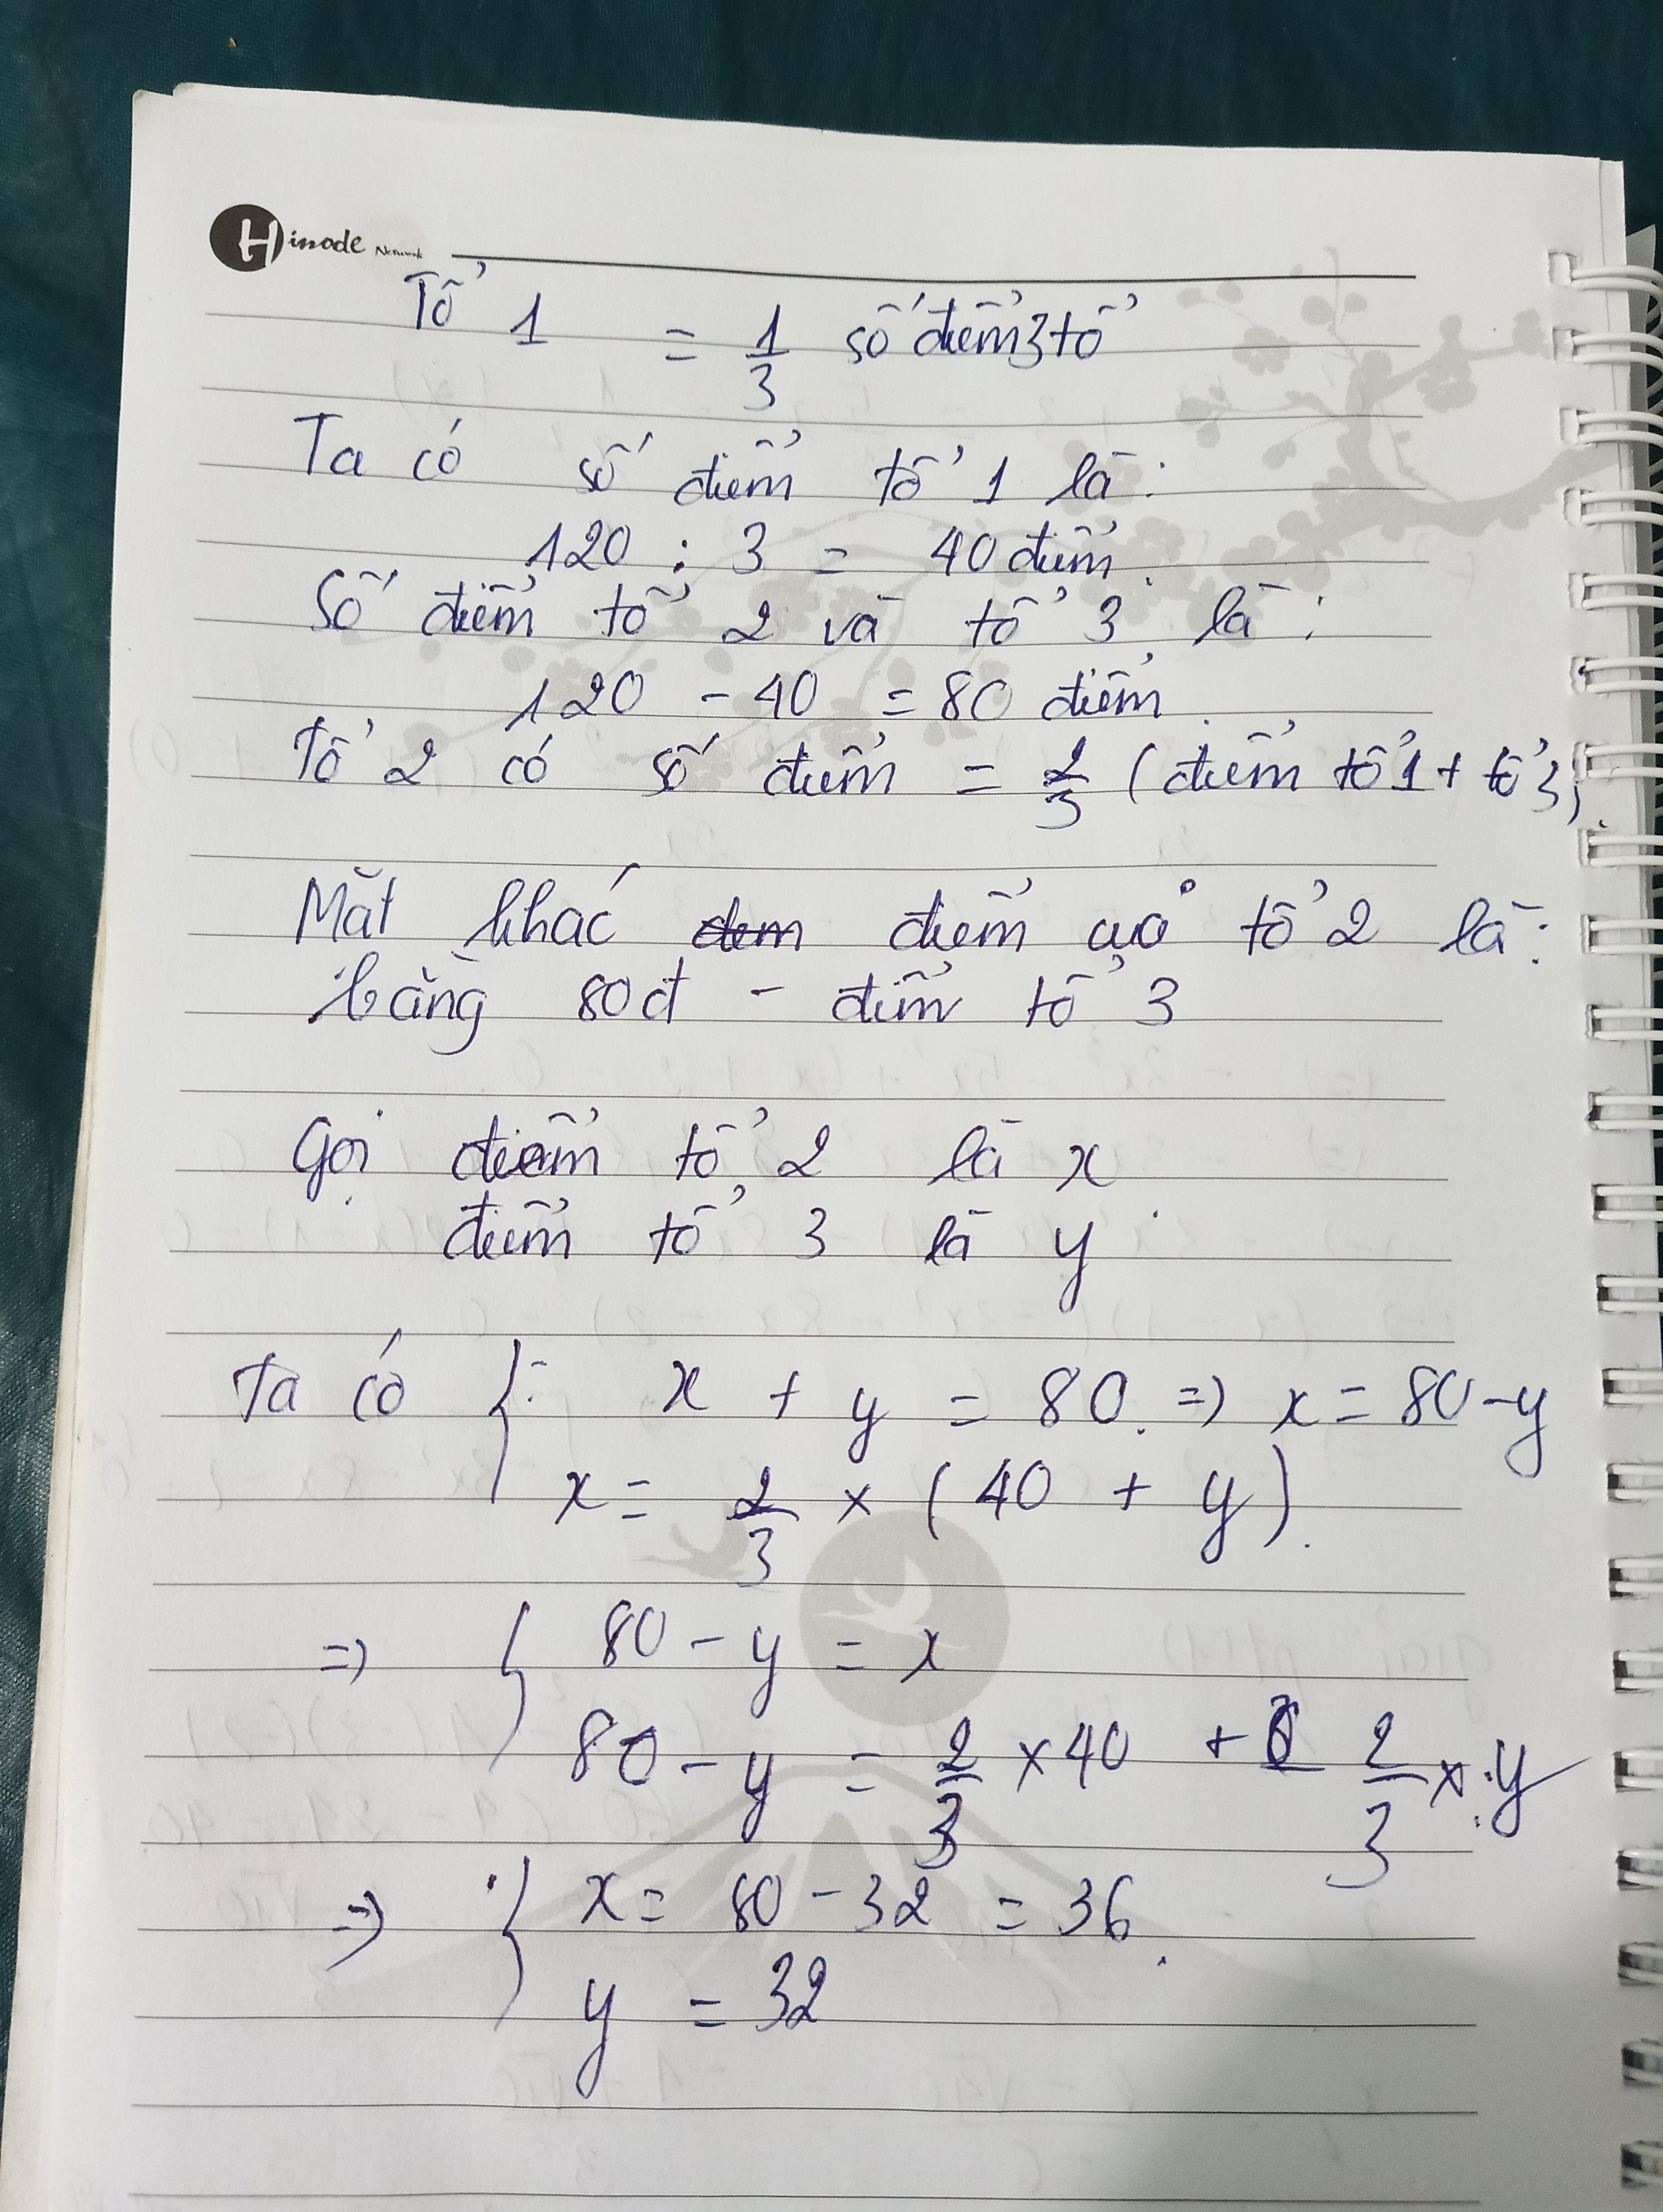 Hinode Network
Tổ 1 = 1/3 số điểm 3 tổ
Ta có số điểm tổ 1 là:
120 : 3 = 40 điểm.
Số điểm tổ 2 và tổ 3 là:
120 - 40 = 80 điểm.
Tổ 2 có số điểm = 2/3 (điểm tổ 1 + tổ 3)
Mặt khác điểm của tổ 2 là:
bằng 80đ - điểm tổ 3
Gọi điểm tổ 2 là x
điểm tổ 3 là y
Ta có { x + y = 80. => x = 80 - y
x = 2/3 × (40 + y).
=> { 80 - y = x
80 - y = 2/3 × 40 + 2/3 × y
=> { x = 80 - 32 = 36.
y = 32